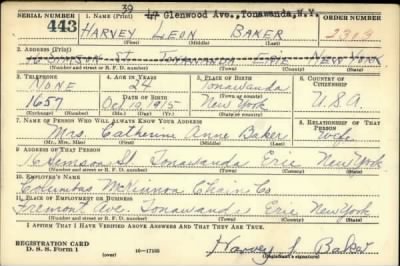 39
SERIAL NUMBER 1. NAME (Print) 47 Glenwood Ave., Tonawanda, N.Y. ORDER NUMBER
443 HARVEY LEON BAKER 2319
(First) (Middle) (Last)
2. ADDRESS (Print)
16 SIMSON St. TONAWANDA ERIE NEW YORK
(Number and street or R. F. D. number) (Town) (County) (State)
3. TELEPHONE 4. AGE IN YEARS 5. PLACE OF BIRTH 6. COUNTRY OF CITIZENSHIP
NONE 24 Tonawanda
DATE OF BIRTH (Town or county)
1657 Oct 19, 1915 New York USA
(Exchange) (Number) (Mo.) (Day) (Yr.) (State or country)
7. NAME OF PERSON WHO WILL ALWAYS KNOW YOUR ADDRESS 8. RELATIONSHIP OF THAT PERSON
Mrs. Catherine Anne Baker Wife
(Mr., Mrs., Miss) (First) (Middle) (Last)
9. ADDRESS OF THAT PERSON
16 Simson St Tonawanda Erie New York
(Number and street or R. F. D. number) (Town) (County) (State)
10. EMPLOYER'S NAME
Columbus McKinnon Chain Co
11. PLACE OF EMPLOYMENT OR BUSINESS
Fremont Ave. Tonawanda Erie New York
(Number and street or R. F. D. number) (Town) (County) (State)
I AFFIRM THAT I HAVE VERIFIED ABOVE ANSWERS AND THAT THEY ARE TRUE.
REGISTRATION CARD
D. S. S. Form 1 (over) 16—17105 Harvey L Baker
(Registrant's signature)